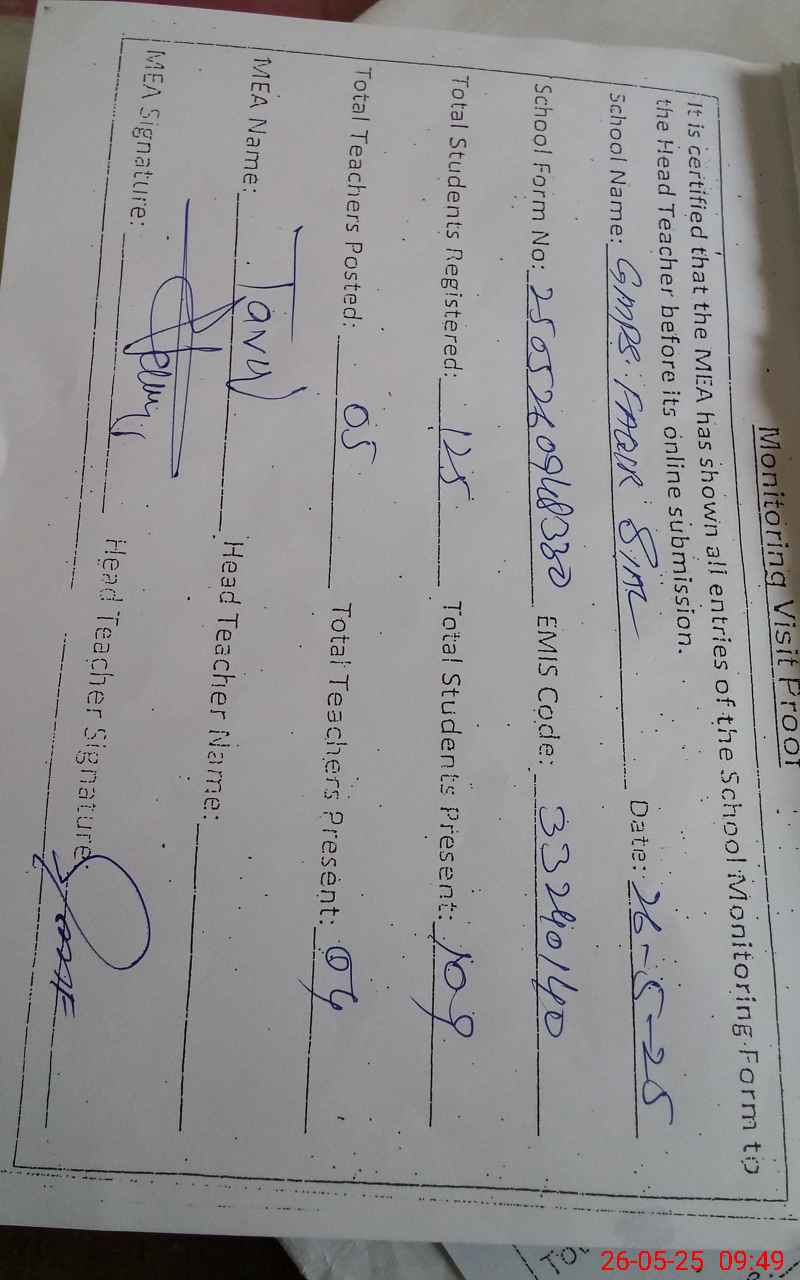 Monitoring Visit Proof
It is certified that the MEA has shown all entries of the School Monitoring Form to
the Head Teacher before its online submission.
School Name: GMPS FAQIR SIAL Date: 26-5-25
School Form No: 2505260948380 EMIS Code: 33240140
Total Students Registered: 125 Total Students Present: 109
Total Teachers Posted: 05 Total Teachers Present: 04
MEA Name: Head Teacher Name:
MEA Signature: Head Teacher Signature:
26-05-25 09:49